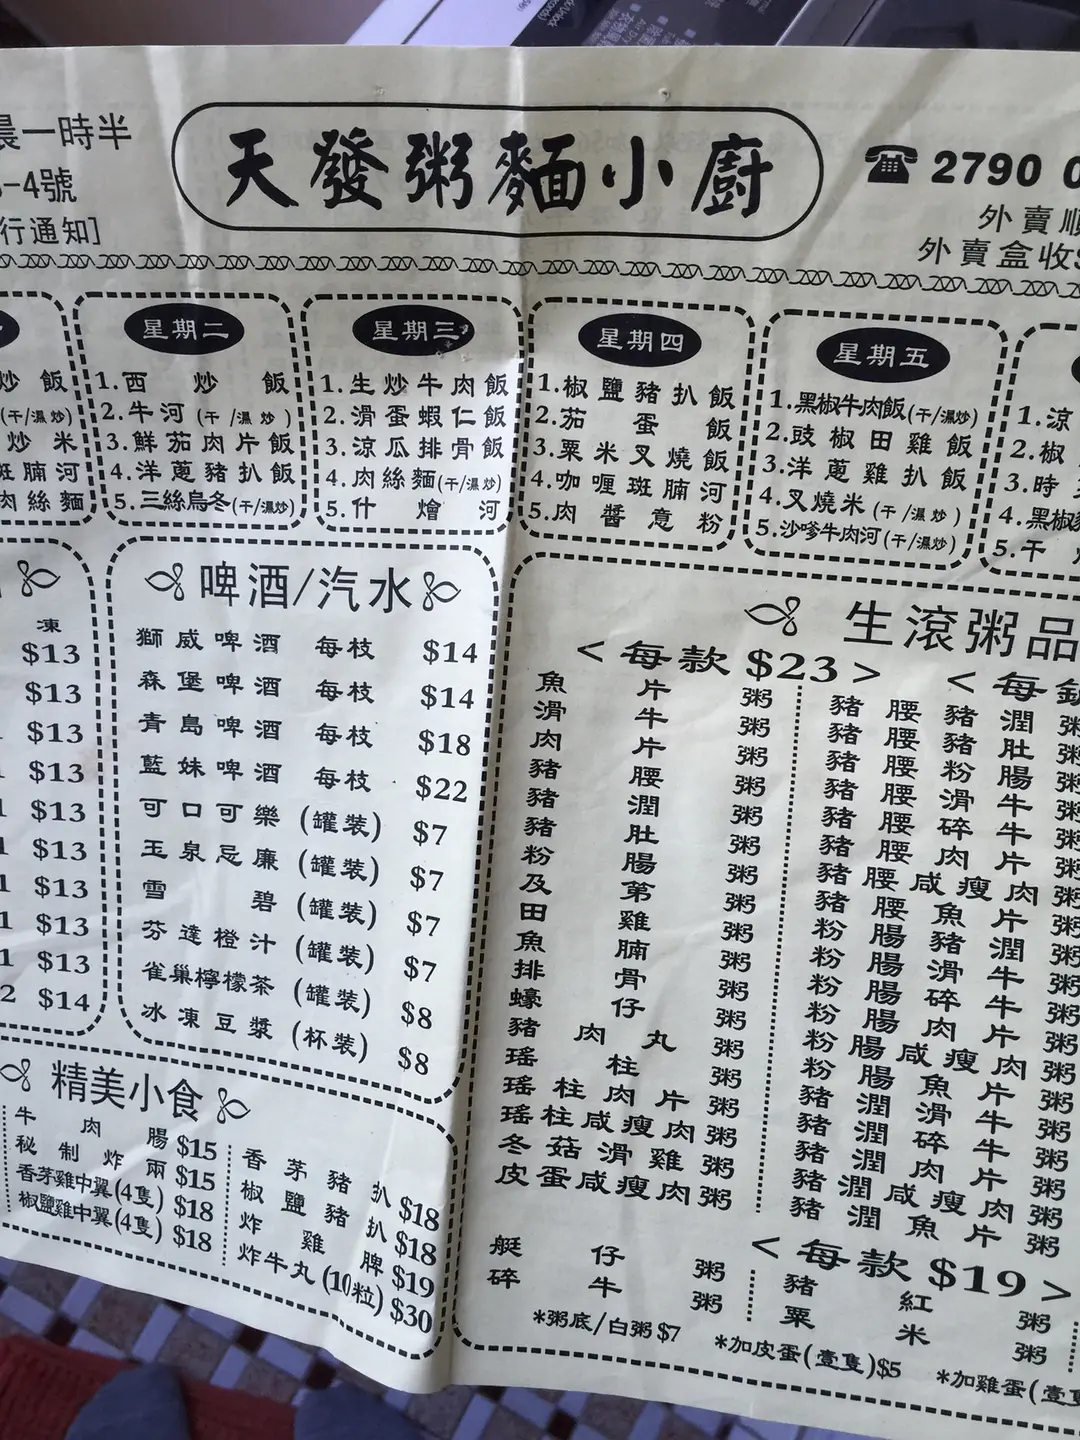 晨一時半
-4號
行通知]
天發粥麵小廚
☎2790
外賣順
外賣盒收
炒飯
(干/濕炒)
炒米
斑腩河
肉絲麵
星期二
1.西炒飯
2.牛河(干/濕炒)
3.鮮茄肉片飯
4.洋蔥豬扒飯
5.三絲烏冬(干/濕炒)
星期三
1.生炒牛肉飯
2.滑蛋蝦仁飯
3.涼瓜排骨飯
4.肉絲麵(干/濕炒)
5.什燴河
星期四
1.椒鹽豬扒飯
2.茄蛋飯
3.粟米叉燒飯
4.咖喱斑腩河
5.肉醬意粉
星期五
1.黑椒牛肉飯(干/濕炒)
2.豉椒田雞飯
3.洋蔥雞扒飯
4.叉燒米(干/濕炒)
5.沙嗲牛肉河(干/濕炒)
1.涼
2.椒
3.時
4.黑椒
5.干
凍
$13
$13
$13
$13
$13
$13
$13
$13
$13
$14
啤酒/汽水
獅威啤酒 每枝 $14
森堡啤酒 每枝 $14
青島啤酒 每枝 $18
藍妹啤酒 每枝 $22
可口可樂(罐裝) $7
玉泉忌廉(罐裝) $7
雪碧(罐裝) $7
芬達橙汁(罐裝) $7
雀巢檸檬茶(罐裝) $8
冰凍豆漿(杯裝) $8
精美小食
牛肉腸 $15
秘制炸兩 $15
香茅雞中翼(4隻) $18
椒鹽雞中翼(4隻) $18
香茅豬扒 $18
椒鹽豬扒 $18
炸雞脾 $19
炸牛丸(10粒) $30
生滾粥品
<每款$23>
魚片粥
滑牛粥
肉片粥
豬腰粥
豬潤粥
豬肚粥
粉腸粥
及第粥
田雞粥
魚腩粥
排骨粥
蠔仔粥
豬肉丸粥
瑤柱粥
瑤柱肉片粥
瑤柱咸瘦肉粥
冬菇滑雞粥
皮蛋咸瘦肉粥
<每
豬腰豬潤粥
豬腰豬肚粥
豬腰粉腸粥
豬腰滑牛粥
豬腰碎牛粥
豬腰肉片粥
豬腰咸瘦肉粥
豬腰魚片粥
粉腸豬潤粥
粉腸滑牛粥
粉腸碎牛粥
粉腸肉片粥
粉腸咸瘦肉粥
粉腸魚片粥
豬潤滑牛粥
豬潤碎牛粥
豬潤肉片粥
豬潤咸瘦肉粥
豬潤魚片粥
<每款$19>
艇仔粥
碎牛粥
豬紅粥
粟米粥
*粥底/白粥$7
*加皮蛋(壹隻)$5
*加雞蛋(壹隻